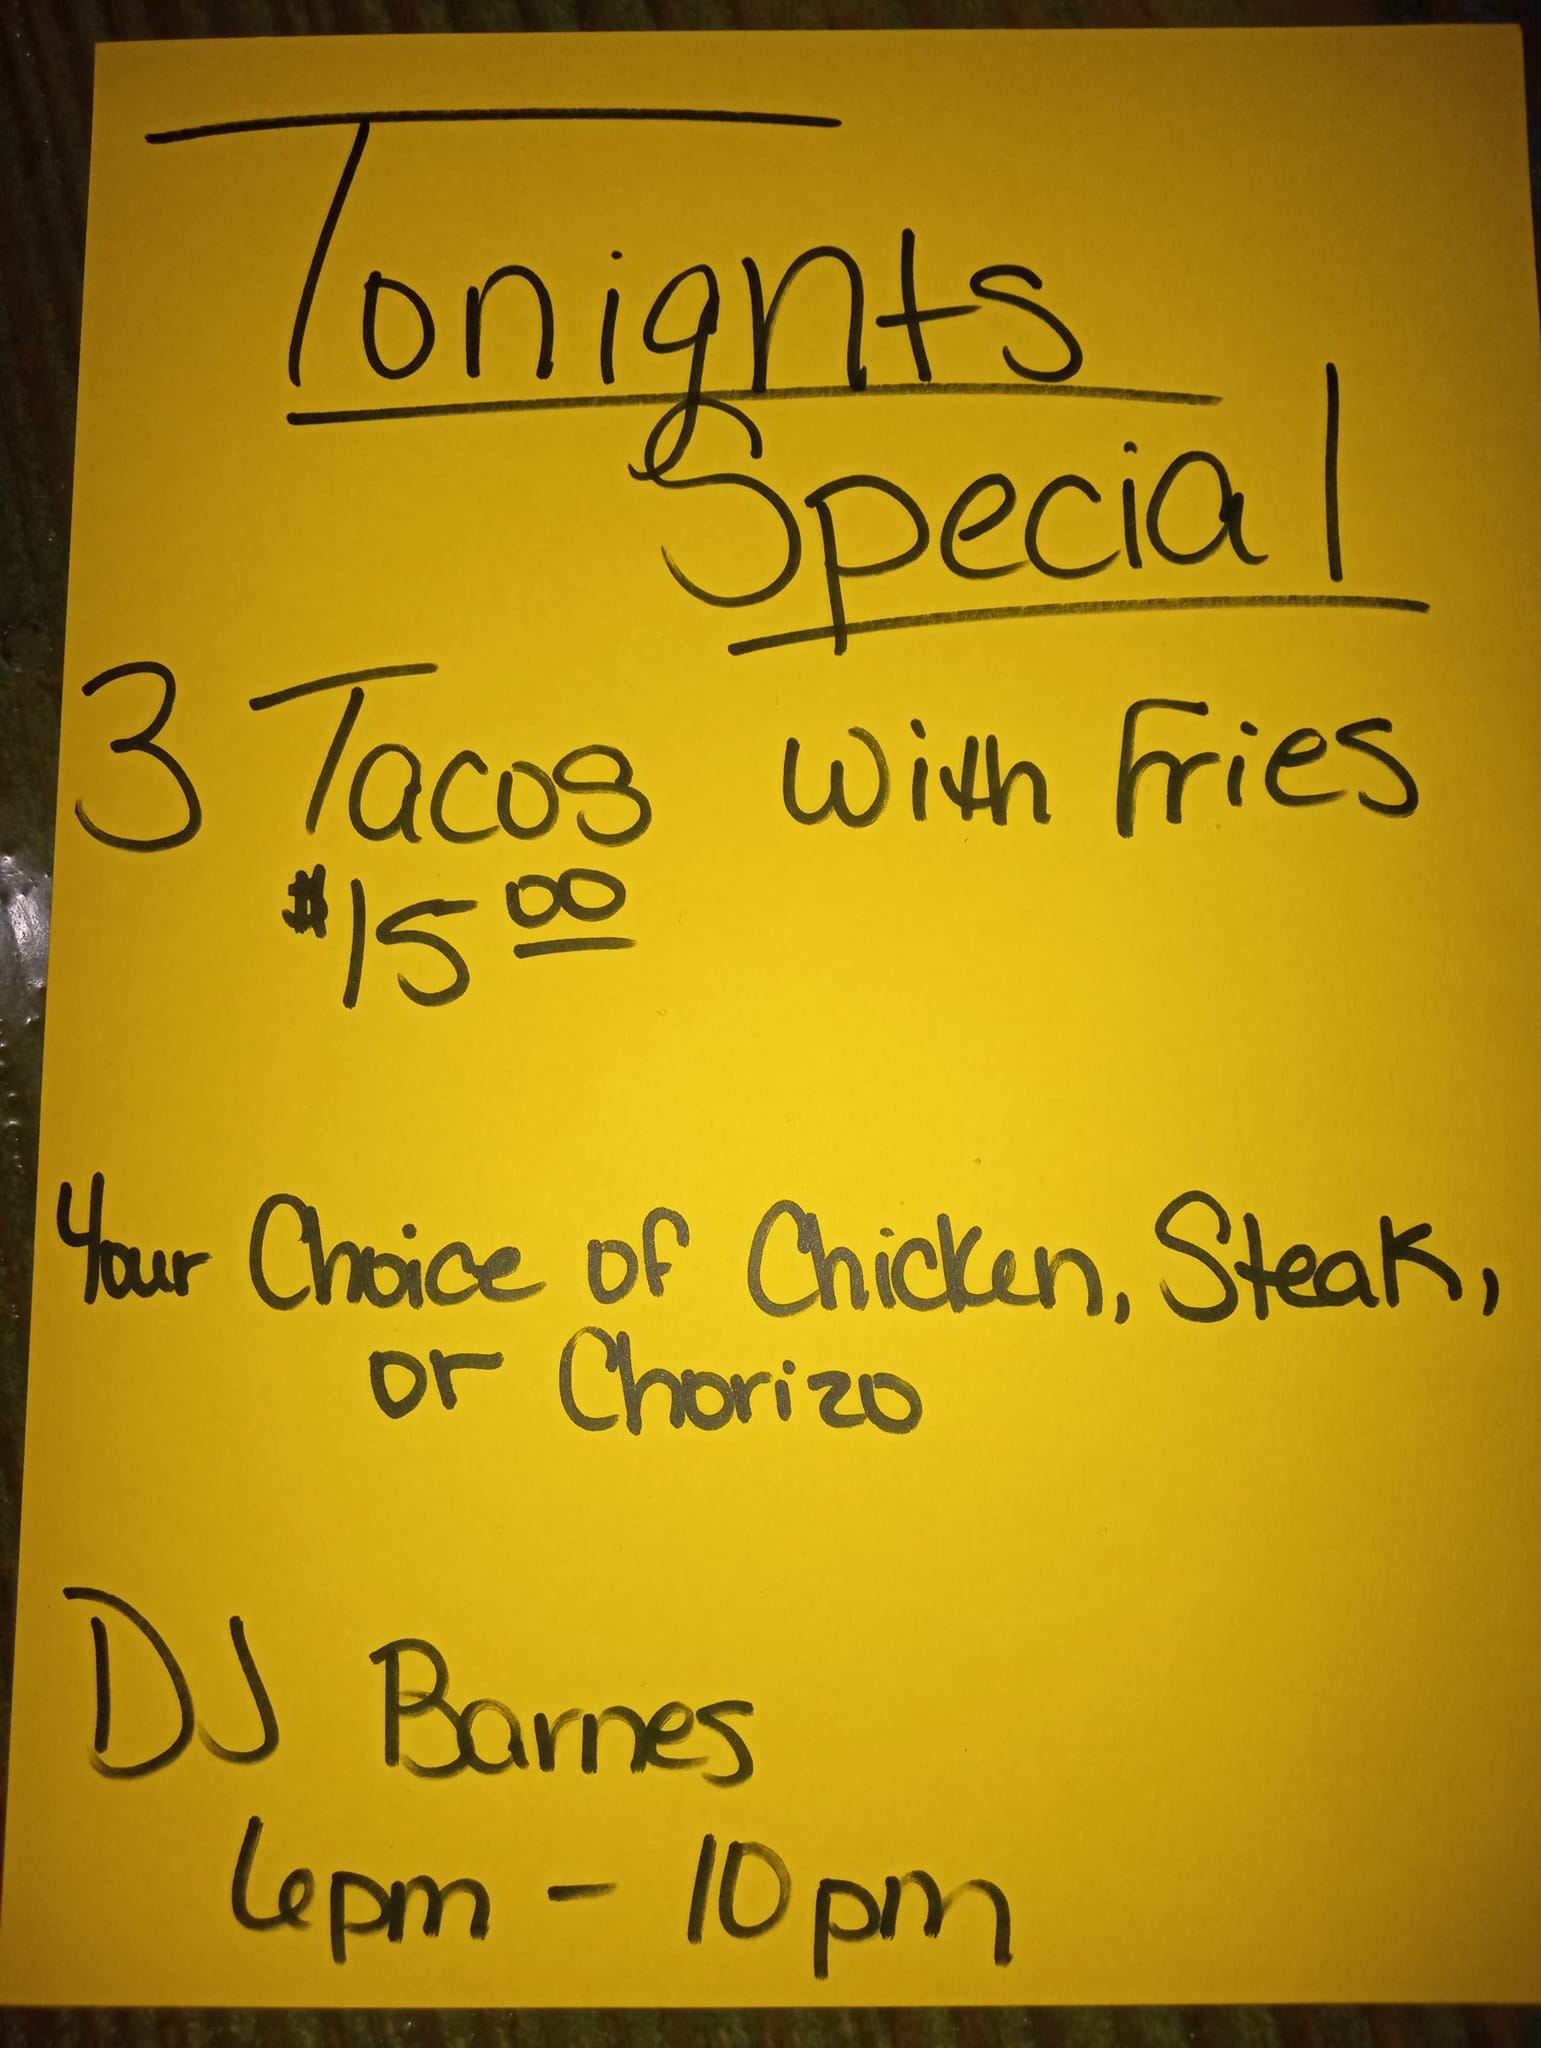 Tonights
Special
3 Tacos with Fries
$15.00
Your Choice of Chicken, Steak,
or Chorizo
DJ Barnes
6pm - 10pm